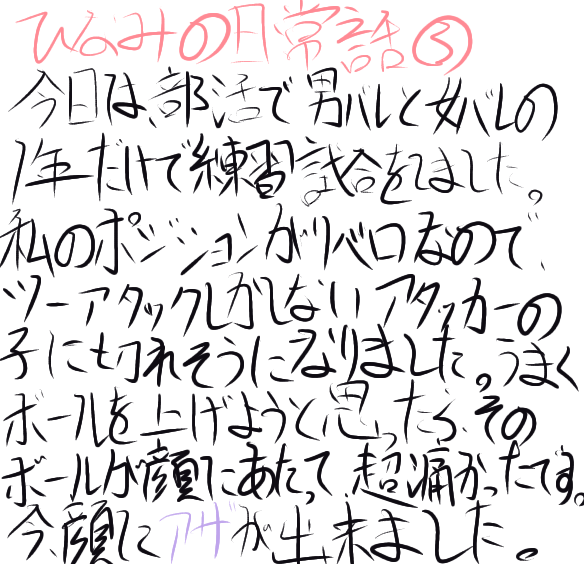 ひなみの日常話③
今日は、部活で男バレと女バレの
1年だけで練習試合をしました。
私のポジションがリベロなので、
ツーアタックしかしないアタッカーの
子に切れそうになりました。うまく
ボールを上げようと思ったら、その
ボールが顔にあたって、超痛かったです。
今、顔にアザが出来ました。